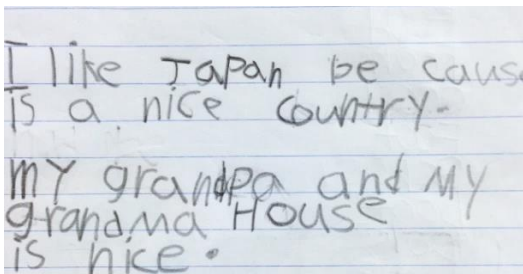 I like Japan be caus
is a nice country.
my grandpa and My
grandma House
is nice.